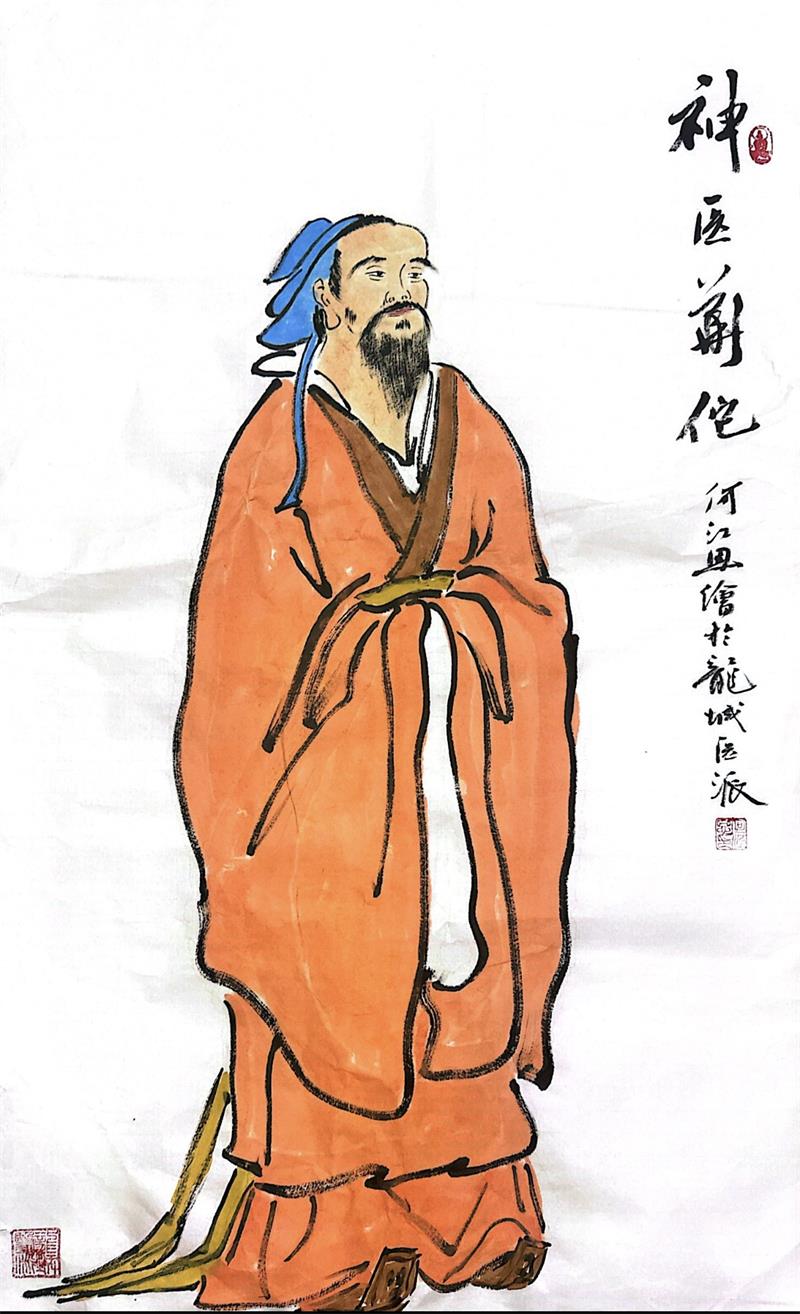 神医華佗
何江繪於龍城医派